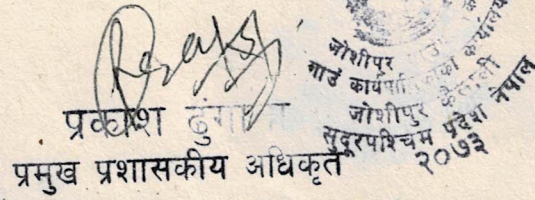 प्रकाश ढुंगाना
प्रमुख प्रशासकीय अधिकृत
जोशीपुर
गाउँ कार्यपालिका कार्यालय
जोशीपुर कैलाली
सुदूरपश्चिम प्रदेश नेपाल
२०७३